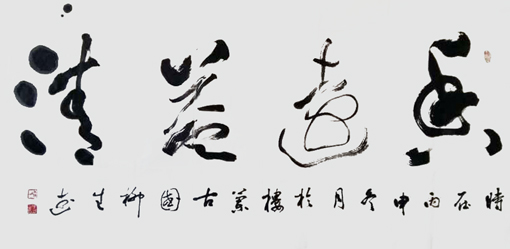 香遠益清
時在丙申冬月於樓蘭古國柳生